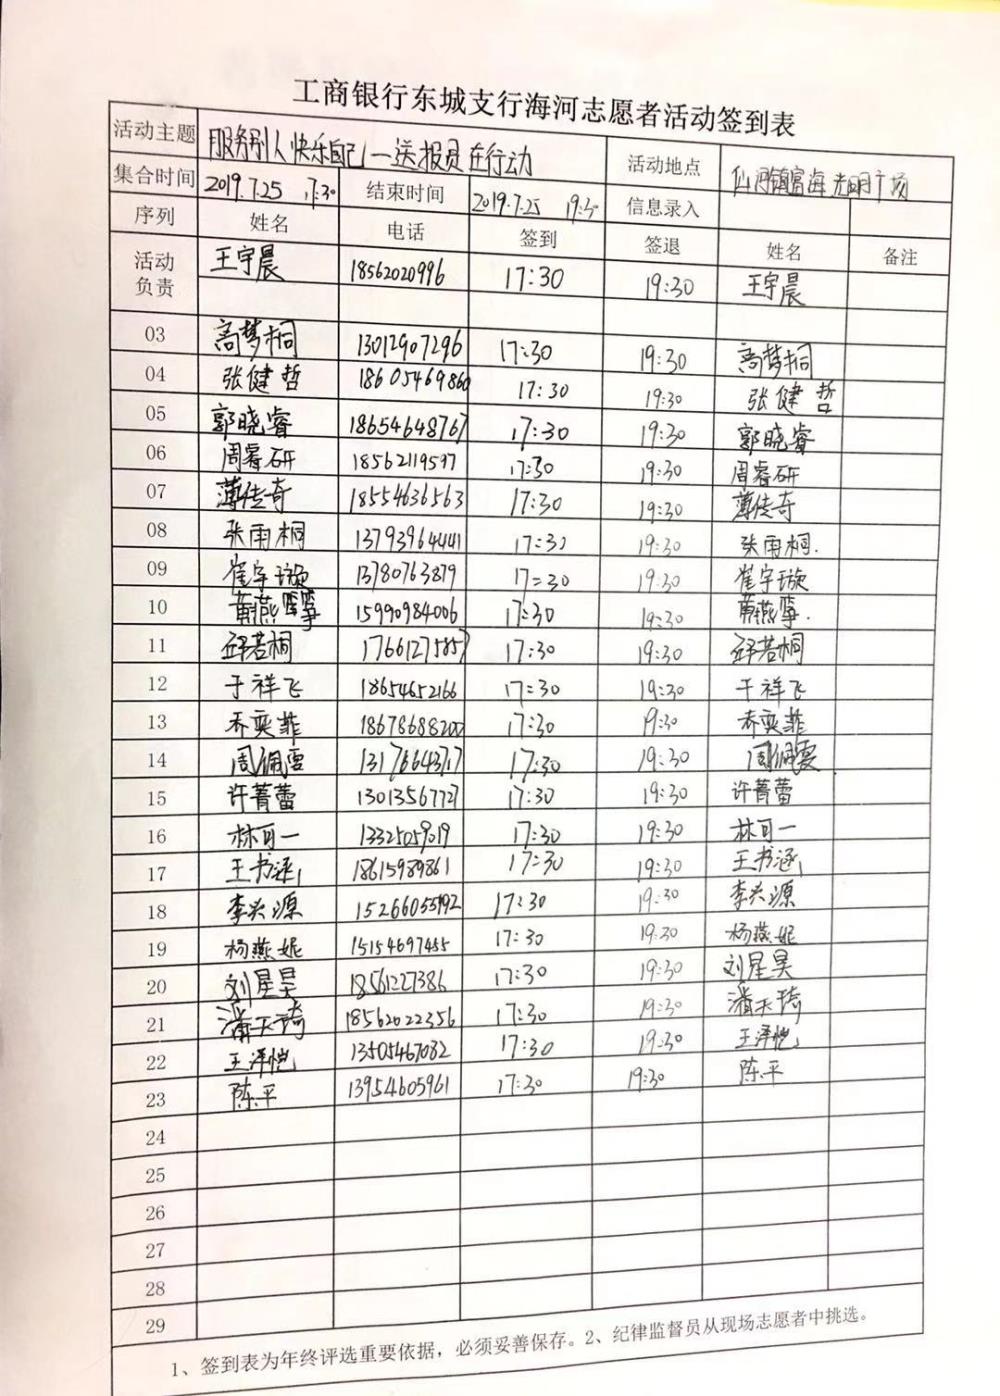 工商银行东城支行海河志愿者活动签到表
活动主题 服务别人快乐自己—送报员在行动 活动地点 仙河镇富海光明广场
集合时间 2019.7.25 17:30 结束时间 2019.7.25 19:30 信息录入
序列 姓名 电话 签到 签退 姓名 备注
活动负责 王宇晨 18562020996 17:30 19:30 王宇晨
03 高梦桐 13012907296 17:30 19:30 高梦桐
04 张健哲 18605469860 17:30 19:30 张健哲
05 郭晓睿 18654648767 17:30 19:30 郭晓睿
06 周睿研 18562119597 17:30 19:30 周睿研
07 薄传奇 18554636563 17:30 19:30 薄传奇
08 张雨桐 13793964441 17:30 19:30 张雨桐.
09 崔宇璇 13780763879 17:30 19:30 崔宇璇
10 黄燕寧 15990984006 17:30 19:30 黄燕寧.
11 邱若桐 17661275857 17:30 19:30 邱若桐
12 于祥飞 18654652166 17:30 19:30 于祥飞
13 乔奕菲 18678688200 17:30 19:30 乔奕菲
14 周佩雯 17:30 19:30 周佩雯
15 许菁蕾 13013567727 17:30 19:30 许菁蕾
16 林可一 13325059019 17:30 19:30 林可一
17 王书涵 18615989861 17:30 19:30 王书涵
18 李兴源 15266055192 17:30 19:30 李兴源
19 杨燕妮 15154697455 17:30 19:30 杨燕妮
20 刘星昊 18561227386 17:30 19:30 刘星昊
21 潘天琦 18562022356 17:30 19:30 潘天琦
22 王泽恺 13505467082 17:30 19:30 王泽恺
23 陈平 13954605961 17:30 19:30 陈平
24
25
26
27
28
29
1、签到表为年终评选重要依据，必须妥善保存。2、纪律监督员从现场志愿者中挑选。